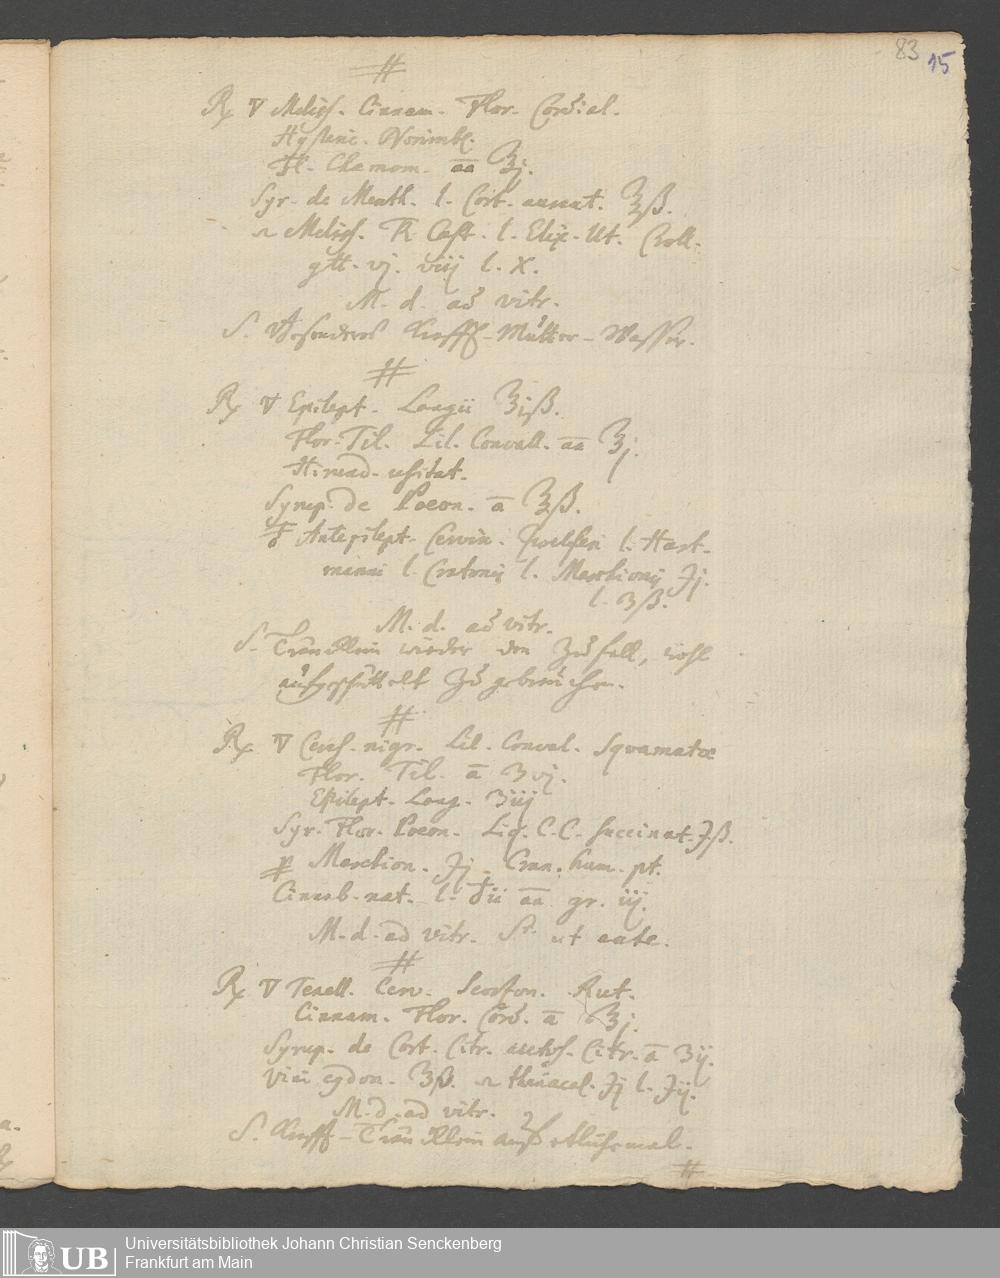 83 15
#
Rx ▽ Meliss. Cinnam. Flor. Cordial.
Hysteric. Norimb.
Fl. Chamom. aa ℥j.
Syr. de Menth. l. Cort. aurant. ℥ß.
Meliss. Cast. l. Elix. Ut. Croll.
gtt. vj. viij l. X.
M. d. ad vitr.
S. Besonderes Krafft-Mutter-Wasser.
#
Rx ▽ Epilept. Langii ℥jß.
Flor. Til. Lil. Convall. aa ℥j.
usitat.
Syrup. de Poeon. a ℥ß.
Antepilept. Cervin. l. Hart-
manni l. Cratonis l. Marchionis ʒj.
l. ʒß.
M. d. ad vitr.
S. Träncklein wieder den Zufall, wohl
aufgeschüttelt zu gebrauchen.
#
Rx ▽ Ceras. nigr. Lil. Conval. Squamatae
Flor. Til. a ʒvj.
Epilept. Lang. ʒiij
Syr. Flor. Poeon. Liq. C. C. succinat. ʒß.
Marchion. ʒj. Cran. hum. pt.
Cinnab. nat. l. ♁ii aa gr. iij.
M. d. ad vitr. S. ut ante.
#
Rx ▽ Tenell. Cerv. Scorzon. Rut.
Cinnam. Flor. Cord. a ℥j.
Syrup. de Cort. Citr. acetos. Citr. a ʒij.
Vini cydon. ℥ß. theriacal. ʒj l. ʒij.
M. d. ad vitr.
S. Krafft-Träncklein auf etlichemal.
#
UB
Universitätsbibliothek Johann Christian Senckenberg
Frankfurt am Main